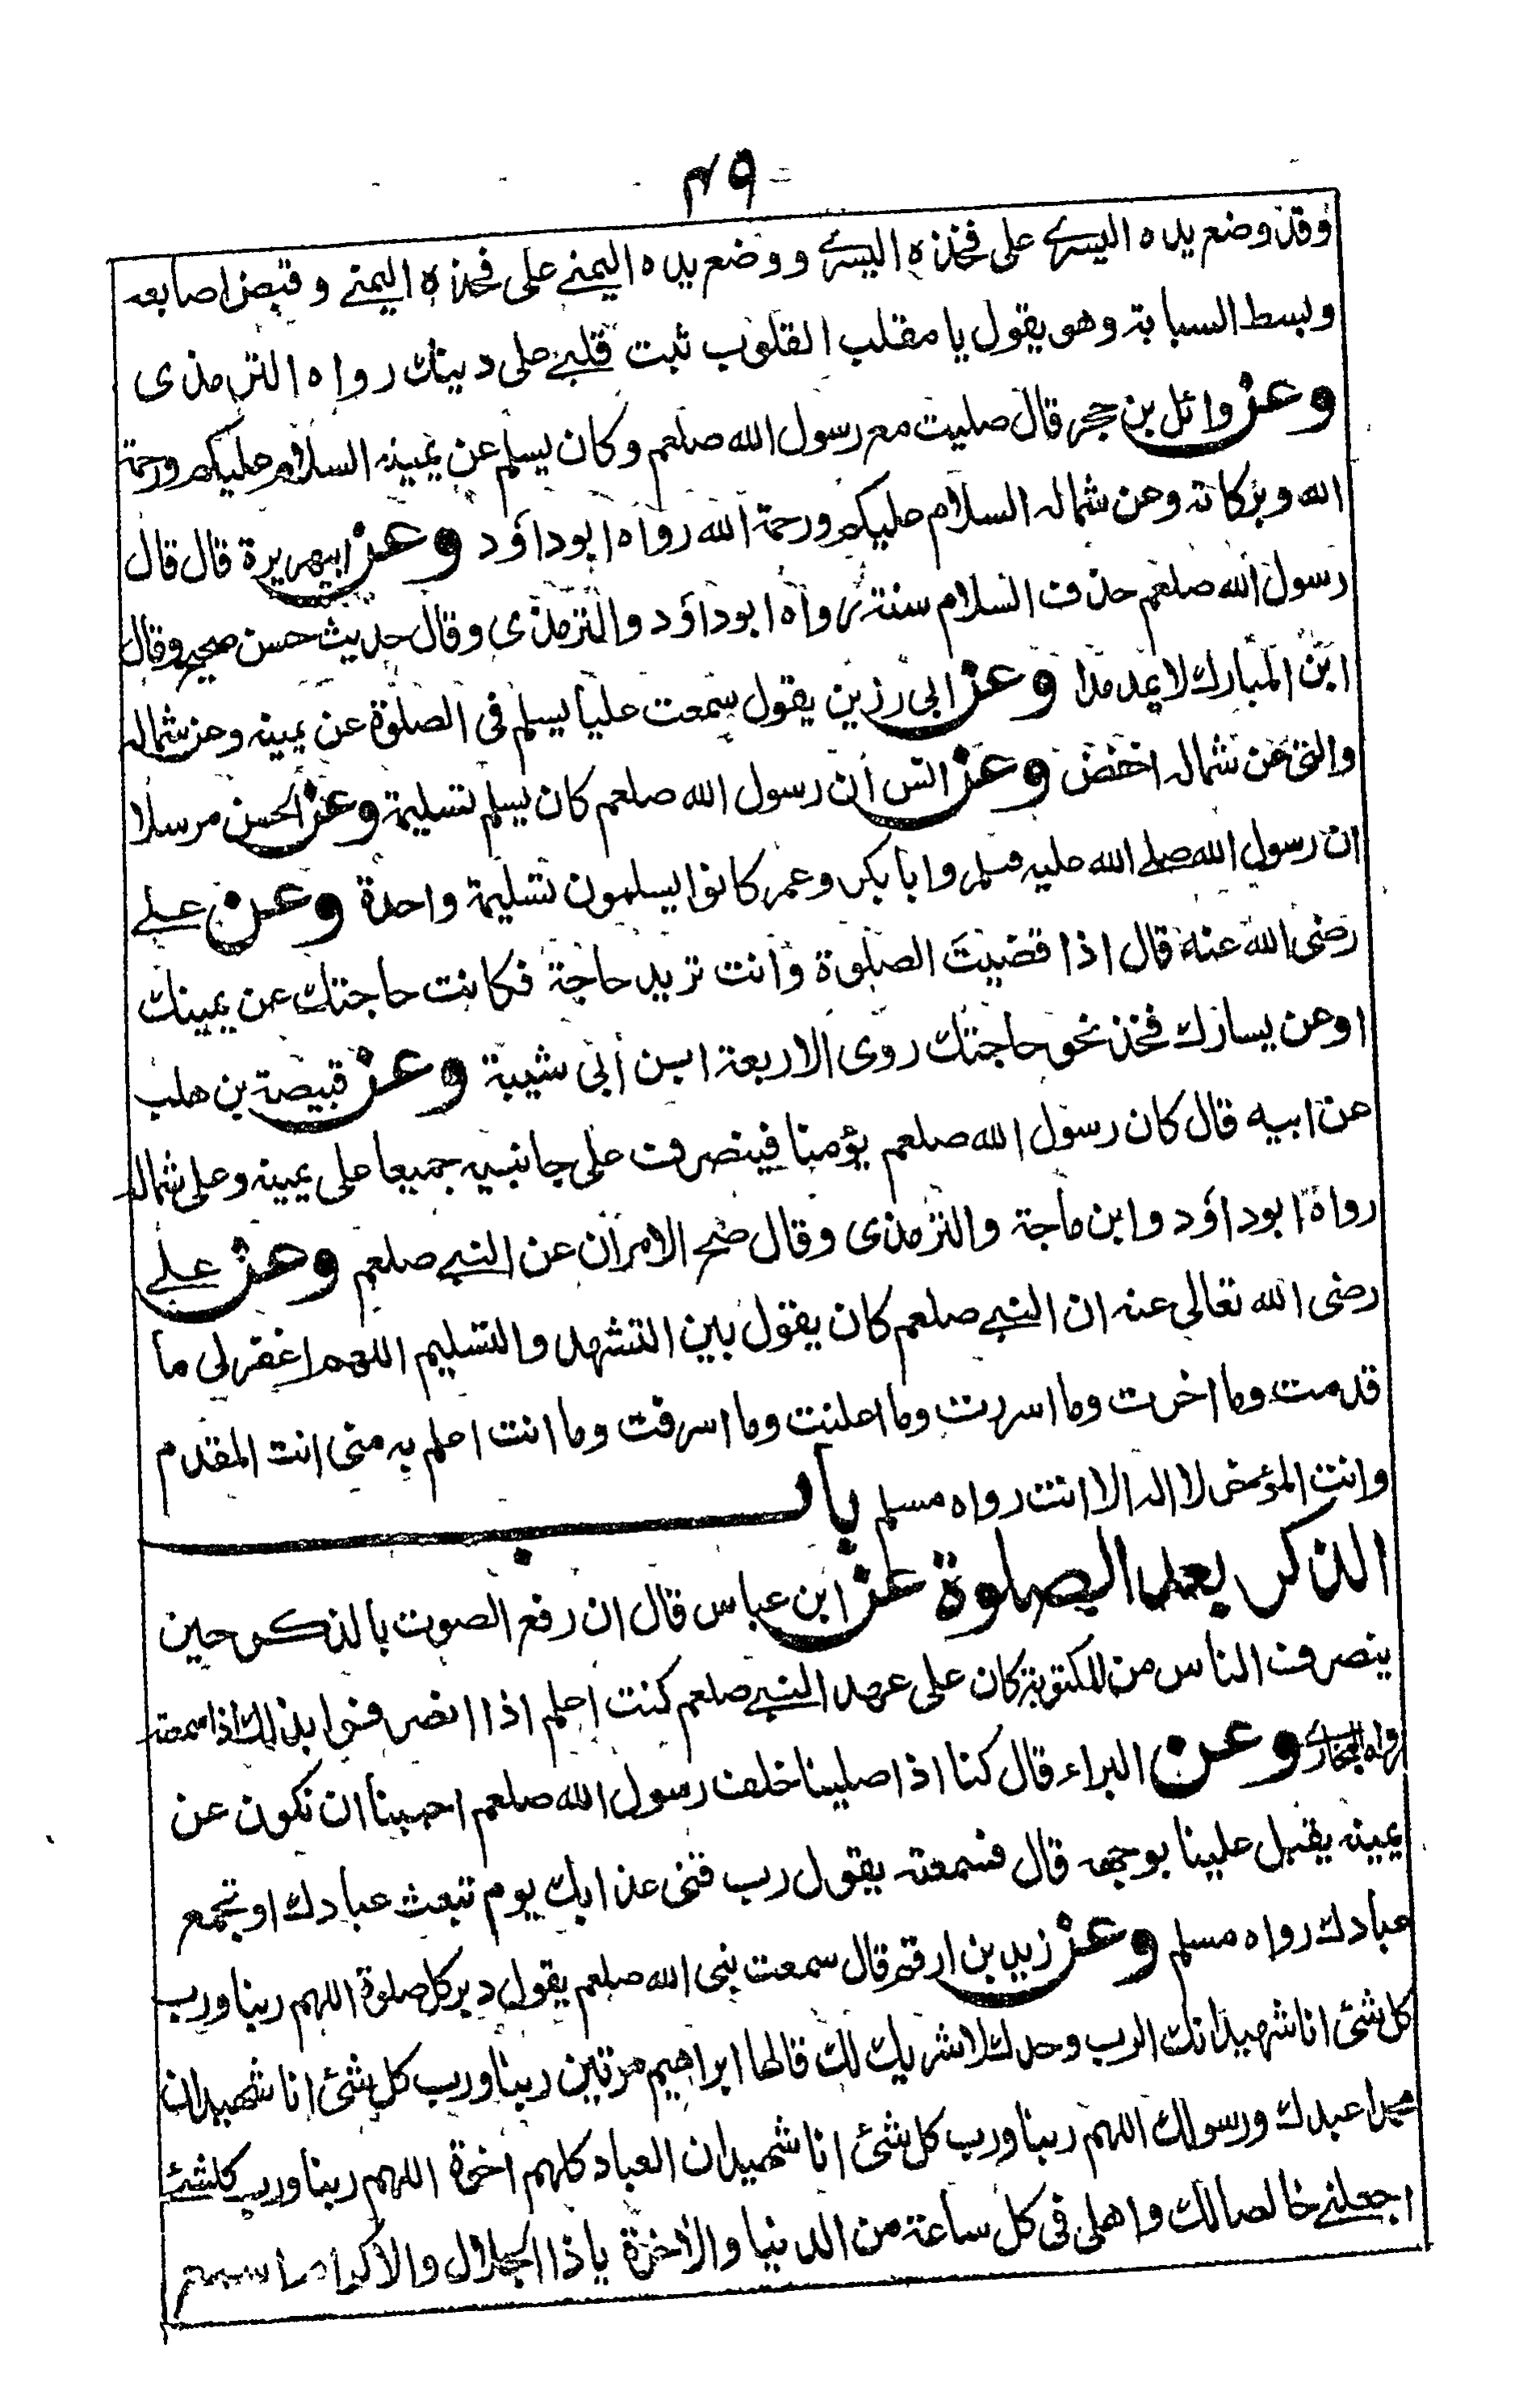 ٤٩
وقد وضع يده اليسرى على فخذه اليسرى ووضع يده اليمنى على فخذه اليمنى وقبض اصابعه
وبسط السبابة وهو يقول يا مقلب القلوب ثبت قلبي على دينك رواه الترمذى
وعن وائل بن حجر قال صليت مع رسول الله صلعم وكان يسلم عن يمينه السلام عليكم ورحمة
الله وبركاته وعن شماله السلام عليكم ورحمة الله رواه ابوداؤد وعن ابيهريرة قال قال
رسول الله صلعم حذف السلام سنة رواه ابوداؤد والترمذى وقال حديث حسن صحيح وقال
ابن المبارك لا يمد مدا وعن ابى رزين يقول سمعت عليا يسلم فى الصلوة عن يمينه وعن شماله
والتى عن شماله اخفض وعن انس ان رسول الله صلعم كان يسلم تسليمة وعن الحسن مرسلا
ان رسول الله صلے الله عليه وسلم وابا بكر وعمر كانوا يسلمون تسليمة واحدة وعن علے
رضى الله عنه قال اذا قضيت الصلوة وانت تريد حاجة فكانت حاجتك عن يمينك
اوعن يسارك فخذ نحو حاجتك روى الاربعة ابن أبى شيبة وعن قبيصة بن هلب
عن ابيه قال كان رسول الله صلعم يؤمنا فينصرف على جانبيه جميعا على يمينه وعلى شماله
رواه ابوداؤد وابن ماجة والترمذى وقال صح الامران عن النبي صلعم وعن علے
رضى الله تعالى عنه ان النبي صلعم كان يقول بين التشهد والتسليم اللهم اغفرلى ما
قدمت وما اخرت وما اسررت وما اعلنت وما اسرفت وما انت اعلم به منى انت المقدم
وانت المؤخر لا اله الا انت رواه مسلم باب
الذكر بعد الصلوة عن ابن عباس قال ان رفع الصوت بالذكر حين
ينصرف الناس من المكتوبة كان على عهد النبي صلعم كنت اعلم اذا انصرفوا بذلك اذا سمعته
رواه البخارى وعن البراء قال كنا اذا صلينا خلف رسول الله صلعم احببنا ان نكون عن
يمينه يقبل علينا بوجهه قال فسمعته يقول رب قنى عذابك يوم تبعث عبادك او تجمع
عبادك رواه مسلم وعن زيد بن ارقم قال سمعت نبى الله صلعم يقول دبر كل صلوة اللهم ربنا ورب
كل شئ انا شهيد انك الرب وحدك لا شريك لك قالها ابراهيم مرتين ربنا ورب كل شئ انا شهيد ان
محمدا عبدك ورسولك اللهم ربنا ورب كل شئ انا شهيد ان العباد كلهم اخوة اللهم ربنا ورب كل شئ
اجعلنے خالصا لك واهلى فى كل ساعة من الدنيا والأخرة يا ذا الجلال والاكرام